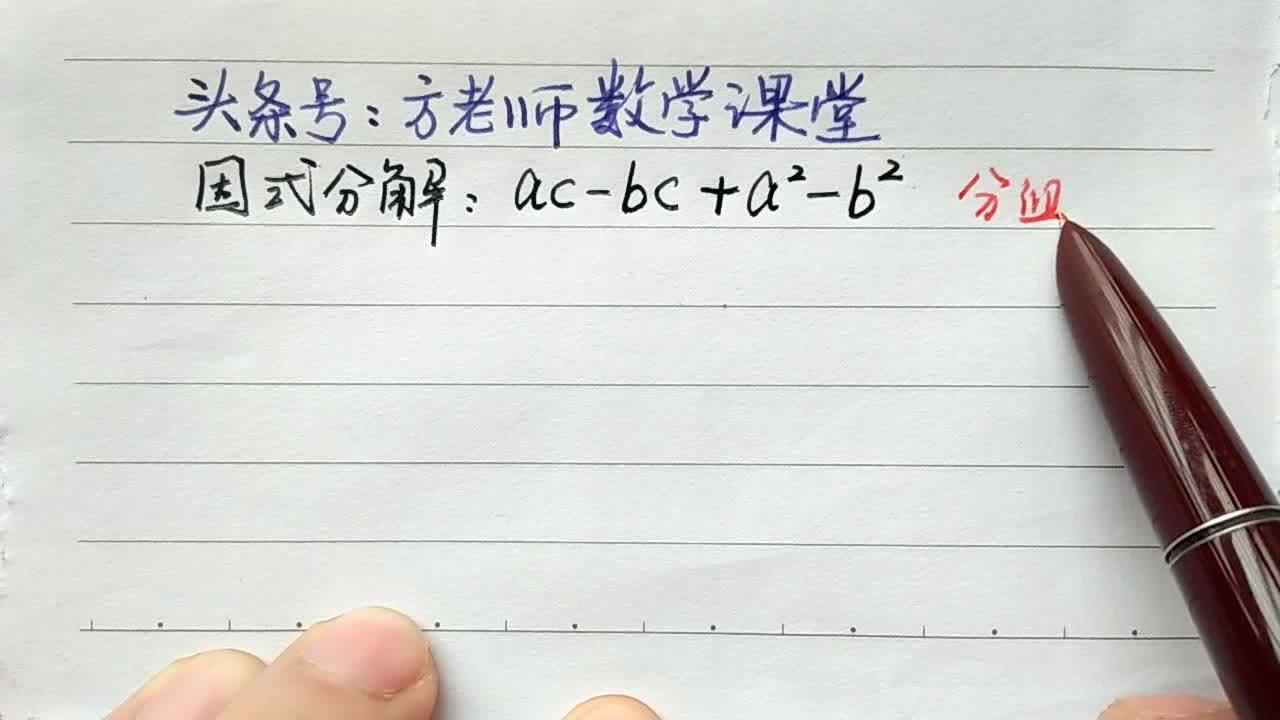 头条号：方老师数学课堂
因式分解：ac-bc+a²-b² 分组